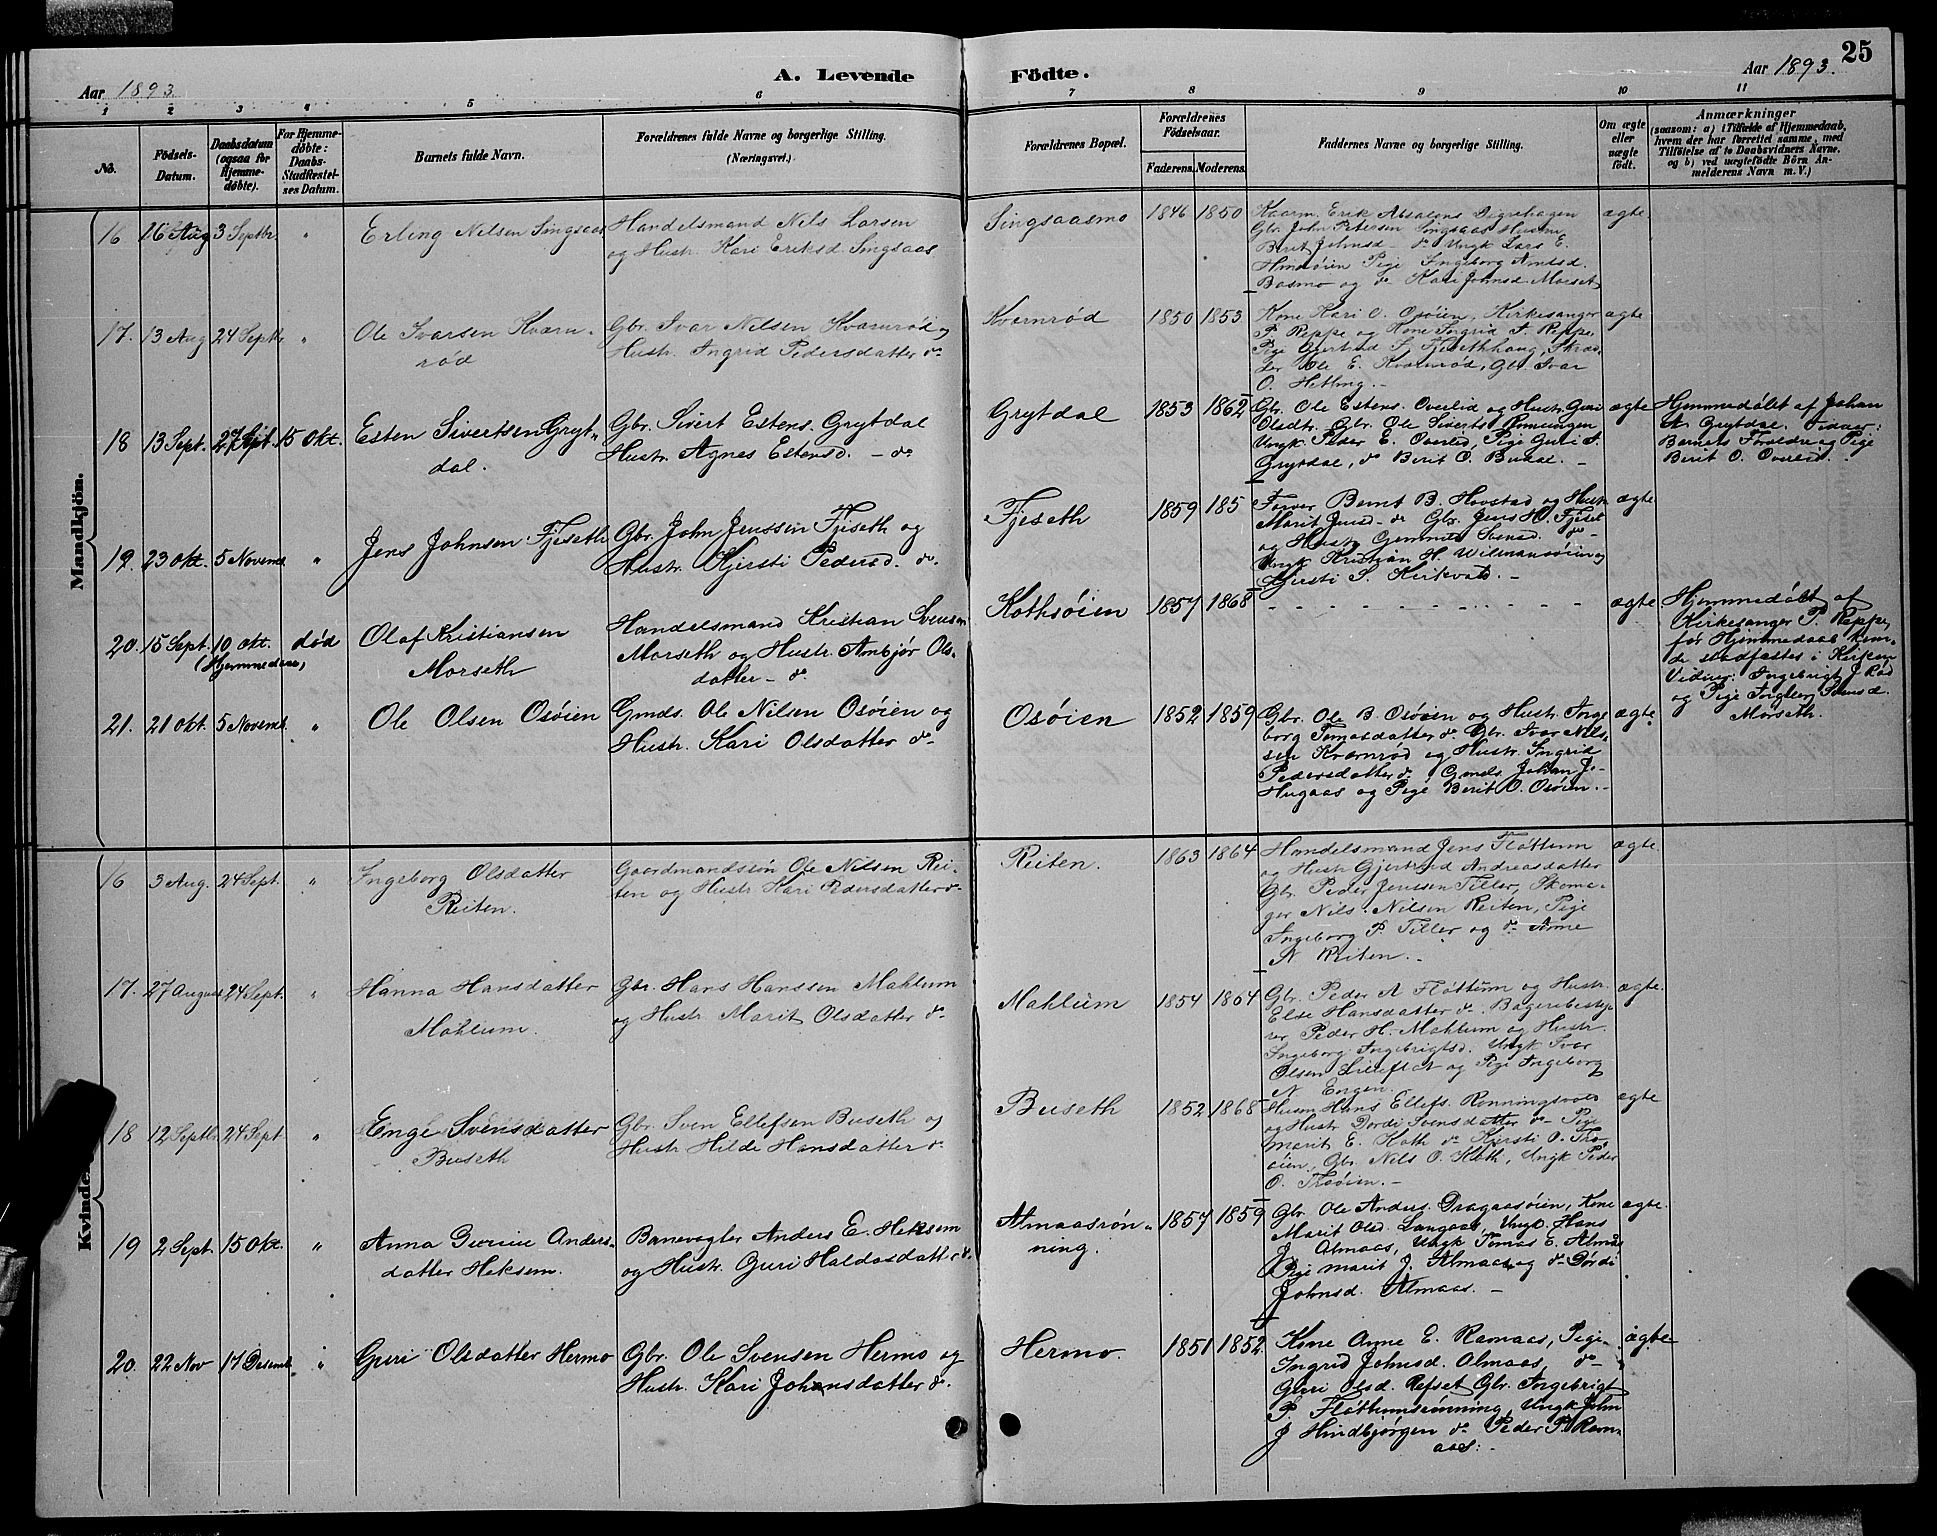 25
A. Levende Födte.
Aar 1893.
Aar 1893.
1 2 3 4 5 6 7 8 9 10 11
No.
Födsels-Datum.
Daabsdatum (ogsaa for Hjemmedöbte).
For Hjemmedöbte: Daabs-Stadfæstelses Datum.
Barnets fulde Navn.
Forældrenes fulde Navne og borgerlige Stilling. (Næringsvei.)
Forældrenes Bopæl.
Forældrenes Födselsaar.
Faderens. Moderens.
Faddernes Navne og borgerlige Stilling.
Om ægte eller uægte födt.
Anmærkninger
(saasom: a) i Tilfælde af Hjemmedaab, hvem der har forrettet samme, med Tilföielse af to Daabsvidners Navne, og b) ved uægtefödte Börn Anmelderens Navn m. V.)
Mandkjön.
16 16 Aug 3 Septbr. " Erling Nilsen Singsaas
Handelsmand Nils Larsen
og Hustr. Kari Eriksd. Singsaas
Singsaasmo 1846 1850
Kaarm. Erik Absalons Digrehagen
Gbr. John Petersen Singsaas Hustru
Berit Johnsd. do Ungk Lars E.
Hindsöien Pige Ingeborg Arntsd.
Bosmo og do Kari Johnsd. Morset
ægte
17. 13 Aug 24 Septb. " Ole Ivarsen Kværn-
röd
Gbr. Ivar Nilsen Kværnröd og
Hustr. Ingrid Pedersdatter do
Kværnröd 1850 1853
Kone Kari O. Osöien, Kirkesanger
P. Reppe og Kone Ingrid A. Reppe,
Pige Gjertrud S. Fjesethhaug, Skræd-
der Ole E. Kværnröd, Gbr. Ivar
O. Hetling. -
ægte
18 13 Sept. 27 Sept. 15 Okt. Esten Sivertsen Gryt-
dal.
Gbr. Sivert Estens. Grytdal
Hustr. Agnes Estensd. - do
Grytdal 1853 1862
Gbr. Ole Estens. Overlid og Hustr. Guri
Olsdtr. Gbr. Ole Siverts
Ungk. Peder E. Overlid, Pige Guri S.
Grytdal, do Berit O. Budal. -
ægte
Hjemmedöbt af Johan
A. Grytdal. Fadder:
Barnets Forældre og Pige
Berit O. Overlid.
19. 23 Okt. 5 Novemb. " Jens Johnsen Fjeseth
Gbr. John Jenssen Fjeseth og
Hustr. Kjersti Pedersd. do.
Fjeseth 1859 185
Farver Bernt B. Hovstad og Hustr.
Marit Jensd. - do Gbr. Jens H. Fjeset
og Hustr. Svensd. do
Ungk Kristian H. Wilmansöien og
Kjersti S. Kirkvold. -
ægte
20. 15 Sept. 10 Okt. (Hjemmedaab) död Olaf Kristiansen
Morseth
Handelsmand Kristian Svensen
Morseth og Hustr. Anbjör Ols-
datter - do
Kothsöien 1857 1868
- - - - - - - - - -
ægte
Hjemmedöbt af
Kirkesanger P. Reppe,
för Hjemmedaab kun-
de stadfæstes i Kirken
Vidner: Ingebrigt J. Röd
og Pige Ingeborg Svensd.
Morseth.
21. 21 Okt. 5 Novemb. " Ole Olsen Osöien
Gmds. Ole Nilsen Osöien og
Hustr. Kari Olsdatter do
Osöien 1852 1859
Gbr. Ole B. Osöien og Hustr. Inge
borg Tomasdatter do Gbr. Ivar Nils-
sen Kværnröd og Hustr. Ingrid
Pedersdatter do, Gmds. Johan J.
Hugaas og Pige Berit O. Osöien. -
ægte
Kvindekjön.
16 3 Aug. 24 Sept. " Ingeborg Olsdatter
Reiten.
Gaardmandssön Ole Nilsen Rei-
ten og Hustr. Kari Pedersdatter do
Reiten. 1863 1864
Handelsmand Jens Flöttum
og Hustr Gjertrud Andreasdatter
Gbr. Peder Jenssen Tiller, Skoma-
ger Nils Nilsen Reiten, Pige
Ingeborg P. Tiller og do Anne
N Reiten. -
ægte
17. 27 August 24 Sept. " Hanna Hansdatter
Mahlum.
Gbr. Hans Hanssen Mahlum
og Hustr Marit Olsdatter do
Mahlum 1854 1864
Gbr. Peder A Flöttum og Hustr.
Else Hansdatter do Bageribesty-
rer Peder H. Mahlum og Hustr.
Ingeborg Ingebrigtsd. Ungk Ivar
Olsen Lilleflot og Pige Ingeborg
N Engen.
ægte
18 12 Septbr 24 Sept " Enge Svensdatter
Buseth
Gbr. Sven Ellefsen Buseth og
Hustr Hilde Hansdatter do
Buseth 1852 1868
Husm Hans Ellefs. Rönningsvold
og Hustr Dordi Svensdatter do Pige
Marit E. Koth do Kjersti O. Thro-
öien, Gbr. Nils O. Koth, Ungk Peder
O. Thröien. -
ægte
19 2 Sept. 15 Okt. " Anna Anders-
datter Heksem.
Banevogter Anders E. Heksem
og Hustr. Guri Haldosdatter do
Almaasrön-
ning. 1857 1859
Gbr. Ole Anders. Dragaasöien, Kone
Marit Olsd. Langaas, Ungk. Hans
J. Almaas, Ungk Tomas E. Almås
Pige Marit J. Almaas og do Dördi
Johnsd. Almaas. -
ægte
20. 22 Nov 17 Desemb. " Guri Olsdatter Hermo
Gbr. Ole Svensen Hermo og
Hustr. Kari Johansdatter do.
Hermo. 1851 1852.
Kone Anne E. Ramaas, Pige
Ingrid Johnsd. Almaas, do
Guri Olsd. Refset Gbr. Ingebrigt
P. Flöttumsrönning, Ungk John
J Hindbjörgen do Peder P. Ram-
aas. -
ægte